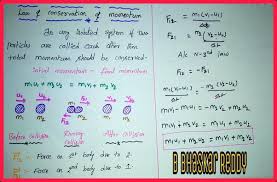 Law of conservation of momentum
In any isolated system if two
particles are collied each other then
total momentum should be conserved.
Initial momentum = final momentum
m₁u₁ + m₂u₂ = m₁v₁ + m₂v₂
Before collision
During collision
After collision
F₁₂ = Force on 1st body due to 2.
F₂₁ = Force on 2nd body due to 1
m₁(v₁-u₁)
Δt
m₂(v₂-u₂)
Δt
A/c N-3rd law
m₁v₁ - m₁u₁ = -m₂v₂ + m₂u₂
m₁v₁ + m₂v₂ = m₁u₁ + m₂u₂
B BHASKAR REDDY